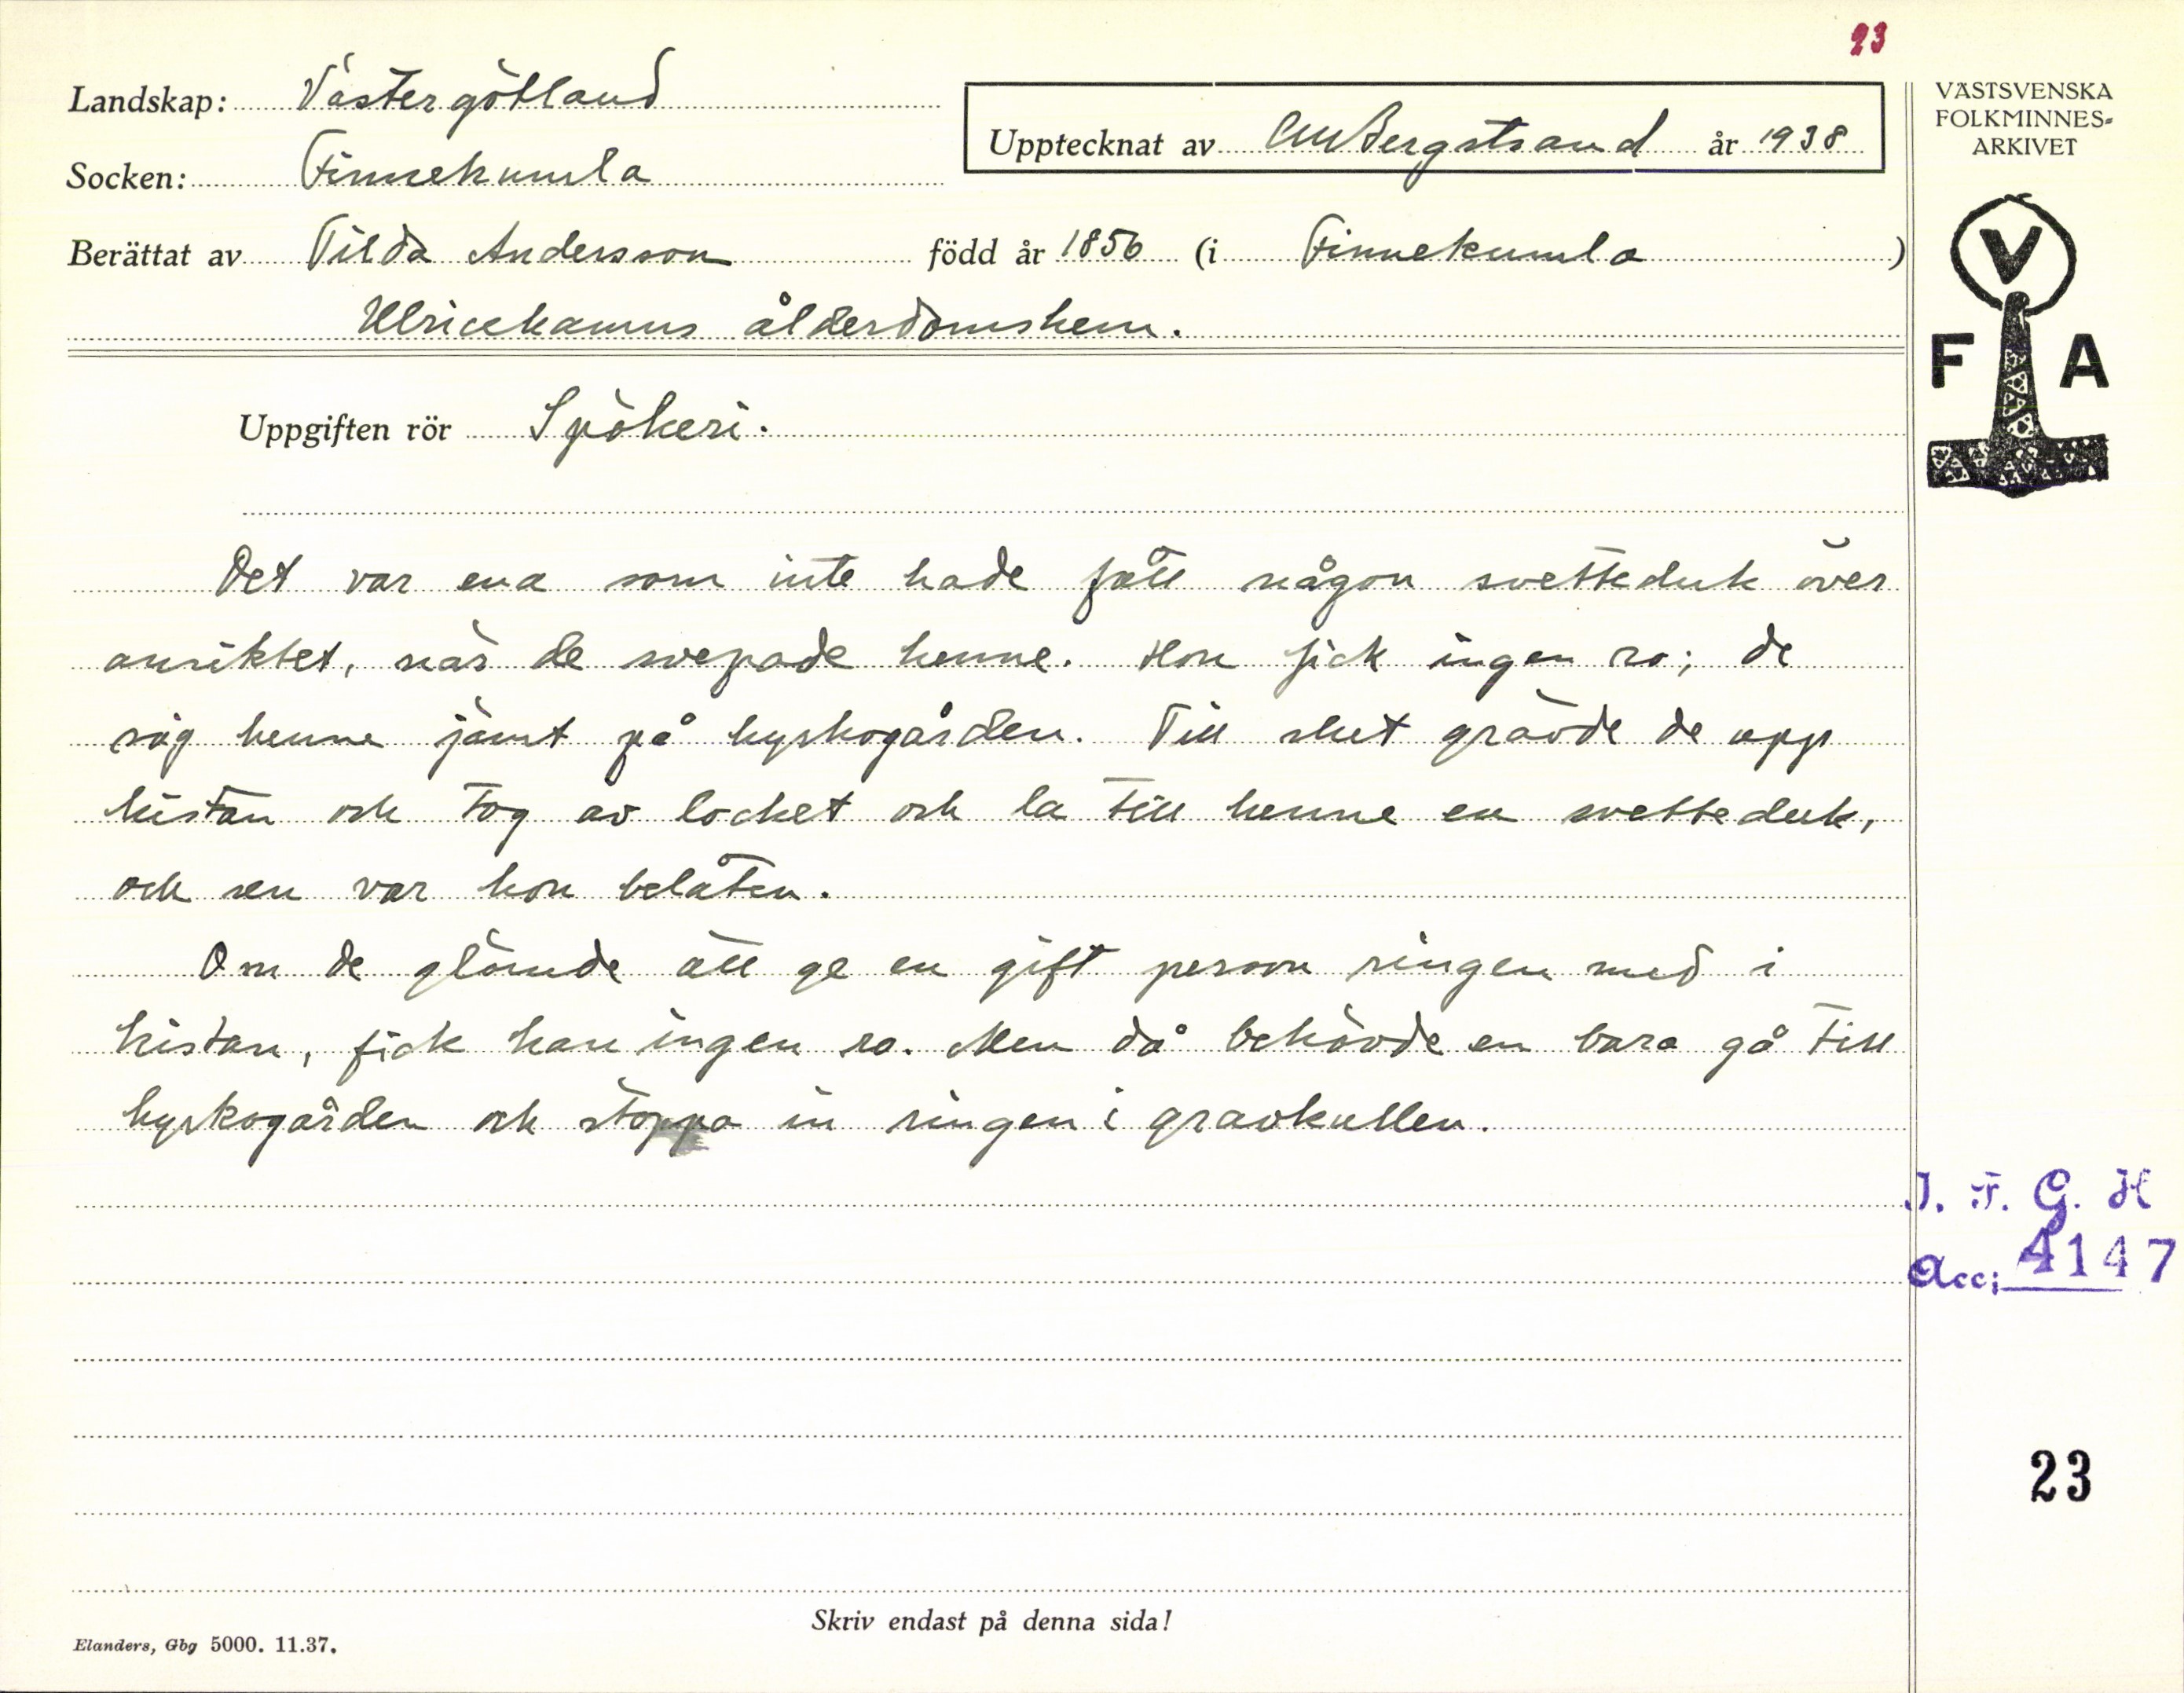 23
Landskap: Västergötland
VÄSTSVENSKA
FOLKMINNES-
ARKIVET
Upptecknat av CM Bergstrand år 1938
Socken: Finnekumla
Berättat av Tilda Andersson född år 1856 (i Finnekumla)
Ulricehamns ålderdomshem.
V
F A
Uppgiften rör Spökeri.
Det var ena som inte hade fått någon svetteduk över
ansiktet, när de svepade henne. Hon fick ingen ro; de
såg henne jämt på kyrkogården. Till slut grävde de upp
kistan och tog av locket och la till henne en svetteduk,
och sen var hon belåten.
Om de glömde att ge en gift person ringen med i
kistan, fick han ingen ro. Men då behövde en bara gå till
kyrkogården och stoppa in ringen i gravkullen.
I. F. G. H
Acc; 4147
23
Skriv endast på denna sida!
Elanders, Gbg 5000. 11.37.